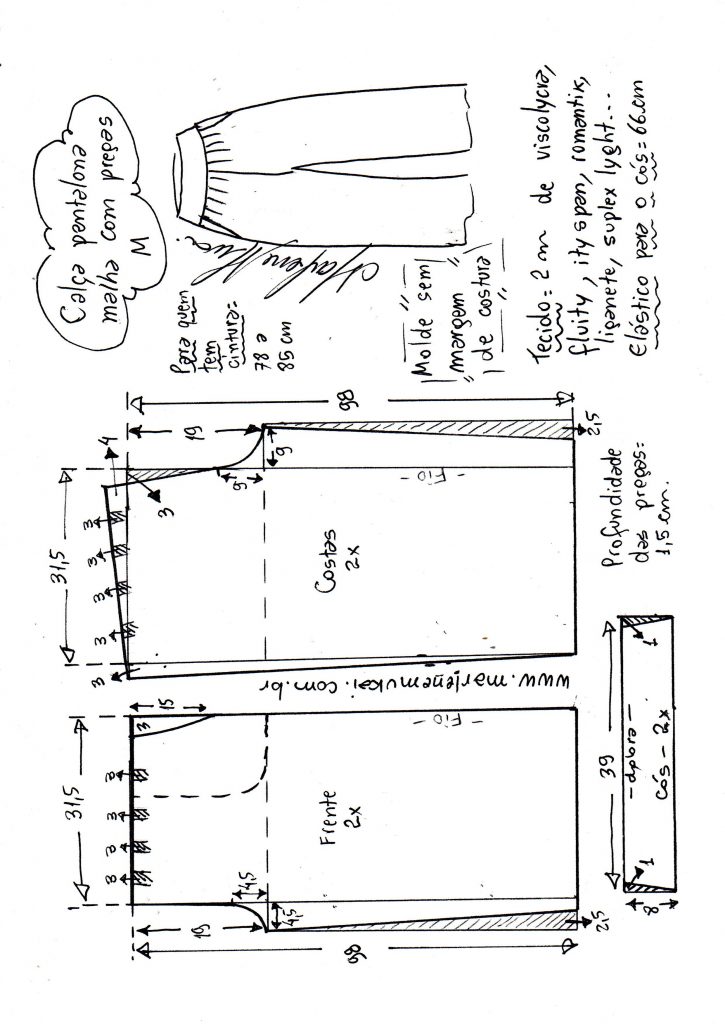 Calça pantalona
malha com pregas
M
Para quem
tem
cintura=
78 a
85 cm
Marlene Mukai
"Molde sem
margem
de costura"
Tecido= 2 m de viscolycra,
fluity, ity span, romantix,
liganete, suplex lyght...
Elástico para o cós= 66cm
98
19
4
9
9
3
31,5
3
3
3
3
3
- Fio -
2,5
Costas
2x
Profundidade
das pregas=
1,5 cm.
www.marlenemukai.com.br
31,5
15
3
3
3
3
3
1
- Fio -
Frente
2x
4,5
4,5
19
98
2,5
39
1
- dobra -
cós - 2x
1
8